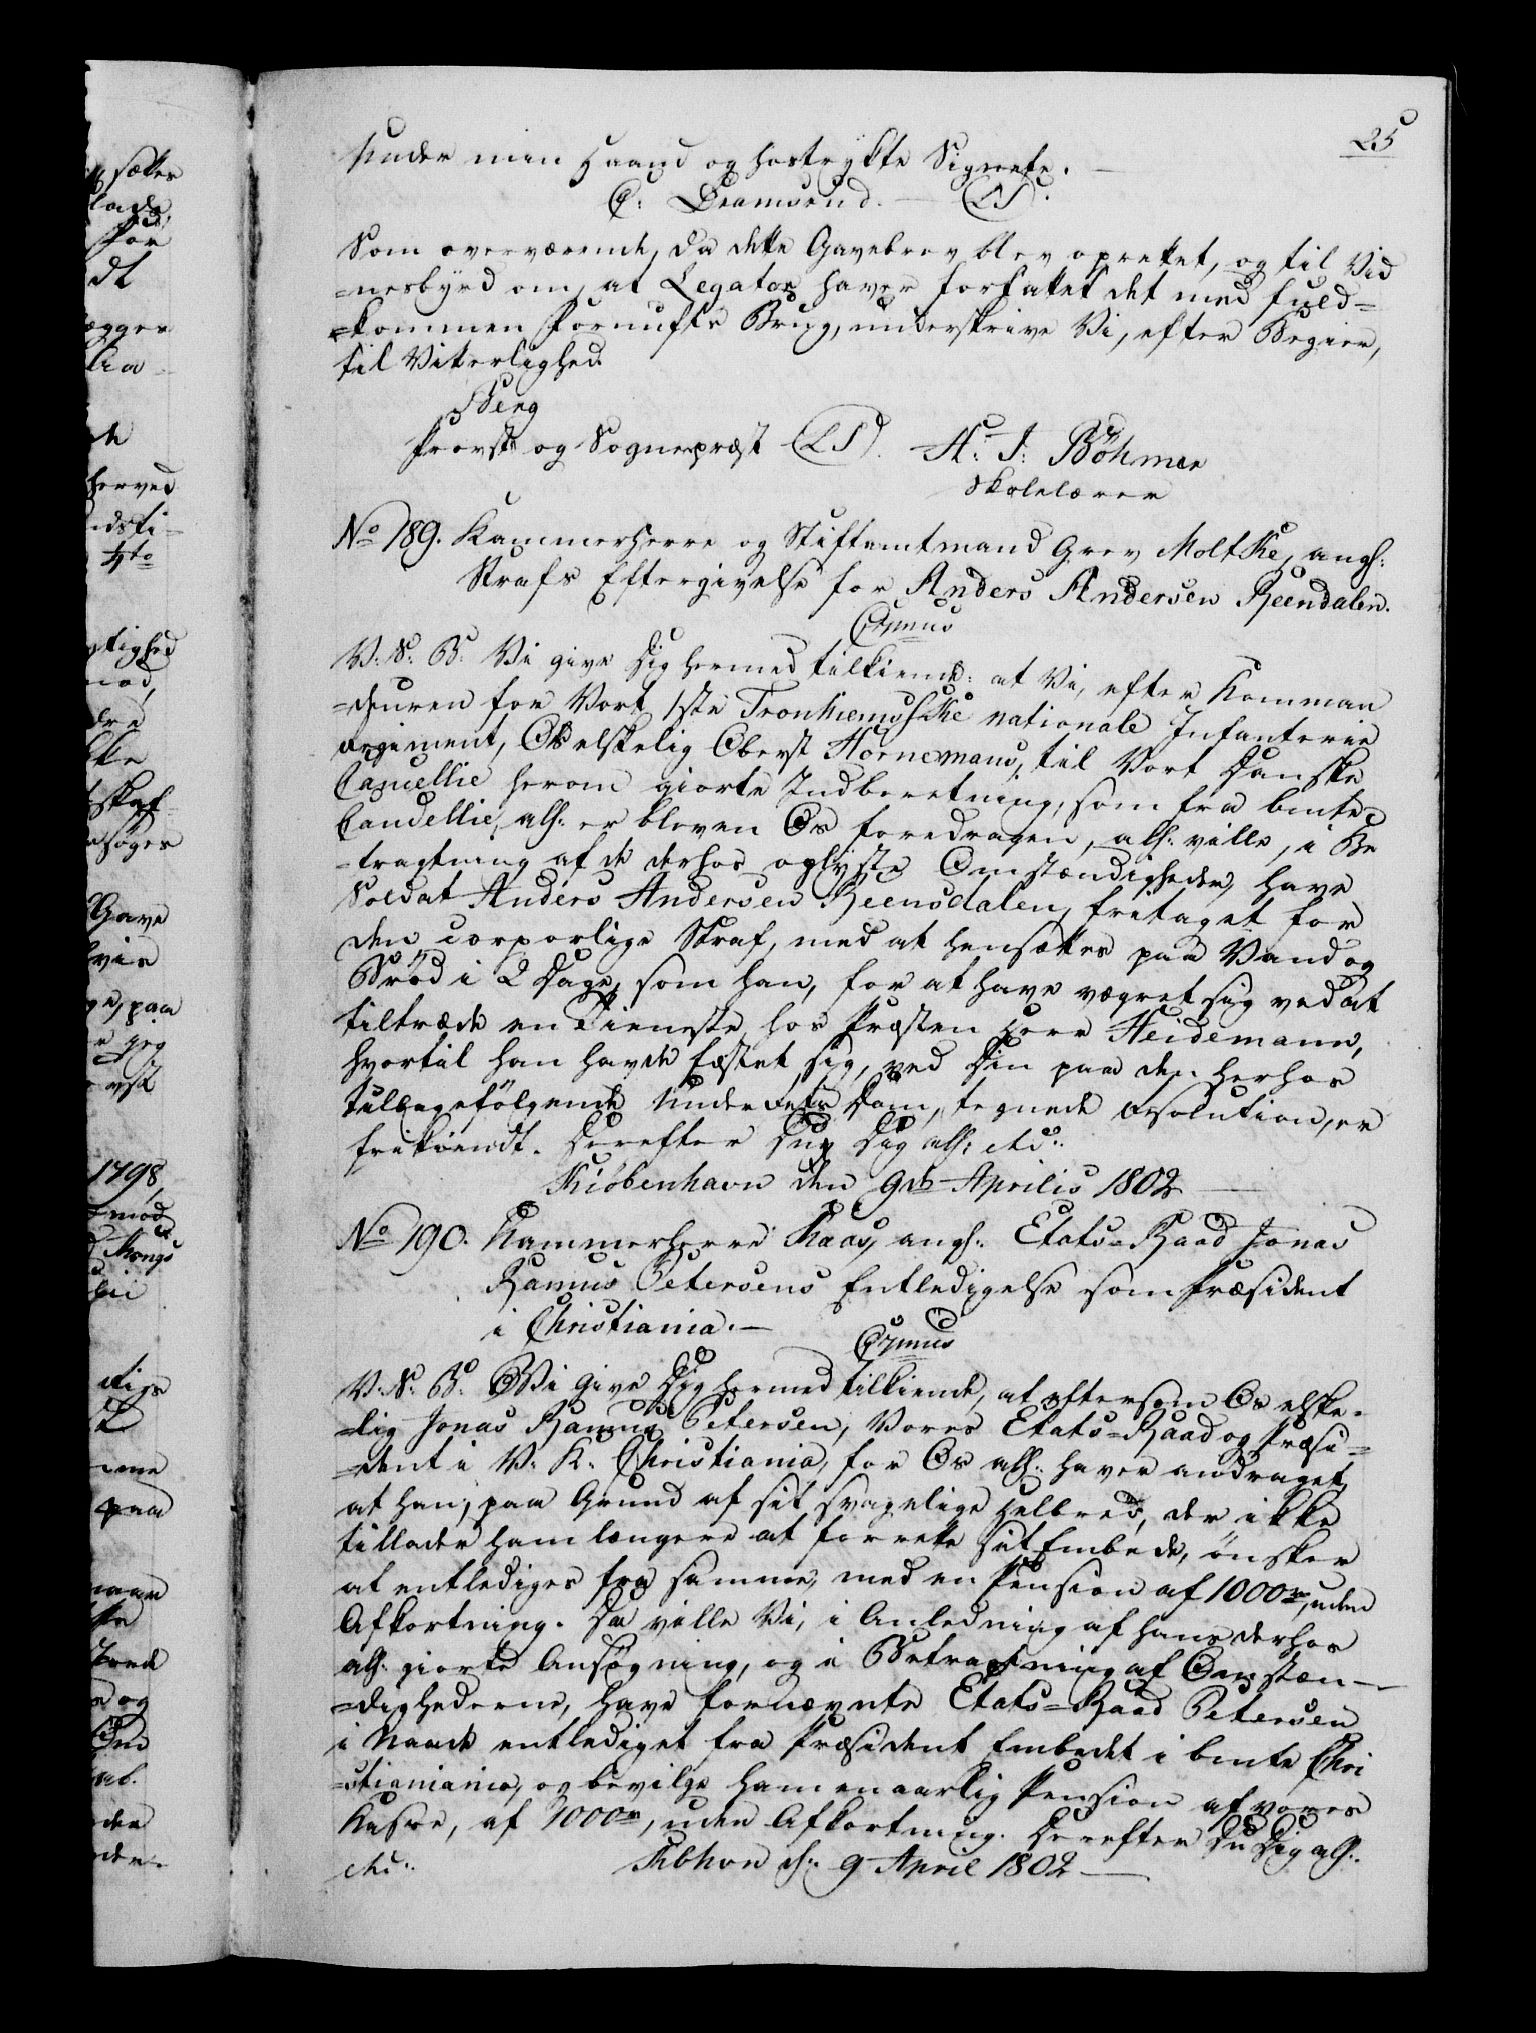 25
under min Haand og hostrykte Signete.
C: Dramsend. — (LS).
Som overværende, da dette Gavebrev blev oprettet, og til Vid
=nesbyrd om, at Legator haver forfattet det med fuld=
=kommen Fornufts Brug, underskrive Vi, efter Begier,
til Vitterlighed
Berg
Provst og Sognepræst (LS). H: J: Böhmer
Skolelærer
No 189. Kammerherre og Stiftamtmand Grev Moltke, angl:
Strafs Eftergivelse for Anders Andersen Reendalen.
V: S: B: Vi give Dig hermed tilkiende: at Vi, efter Komman
=deuren for Vort 1ste Tronhiemske nationale Infanterie
Regiment, Os elskelig Oberst Hornemans, til Vort Danske
Cancellie herom giorte Indberetning, som fra bemte
Cancellie, all: er bleven Os foredragen, all: ville, i Be
=tragtning af de derhos oplyste Omstændigheder, have
Soldat Anders Andersen Reensdalen, fritaget for
den corporlige Straf, med at hensættes paa Vand og
Brød i 2 Dage, som han, for at have vægret sig ved at
tiltræde en Tieneste hos Præsten Herr Heidemann,
hvortil han havde fæstet sig, ved Din paa den herhos
tilbagefølgende Underrets Dom, tegnede Resolution, er
frikiendt. Derefter Du Dig all: etc:
Kiöbenhavn den 9de Aprilis 1802
No 190. Kammerherre Kaas, angl. Etats=Raad Jonas
Ramus Petersens Entledigelse som Præsident
i Christiania. —
V: S: B: Vi give Dig hermed tilkiende, at eftersom Os elske=
=lig Jonas Ramus Petersen, Vores Etats=Raad og Præsi=
=dent i V. K. Christiania, for Os all: haver andraget,
at han, paa Grund af sit svagelige Helbred, der ikke
tillader ham længere at forrette sit Embede, ønsker
at entlediges fra samme, med en Pension af 1000 rd, uden
Afkortning. Da ville Vi, i Anledning af hans derhos
all: giorte Ansøgning, og i Betragtning af Omstæn—
=dighederne, have fornævnte Etats=Raad Petersen
i Naade entlediget fra Præsident Embedet i bemte Chri
=stianiania, og bevilge ham en aarlig Pension af vores
Kasse, af 1000 rd, uden Afkortning. Derefter Du Dig all:
etc: Kbhvn d: 9 April 1802 —